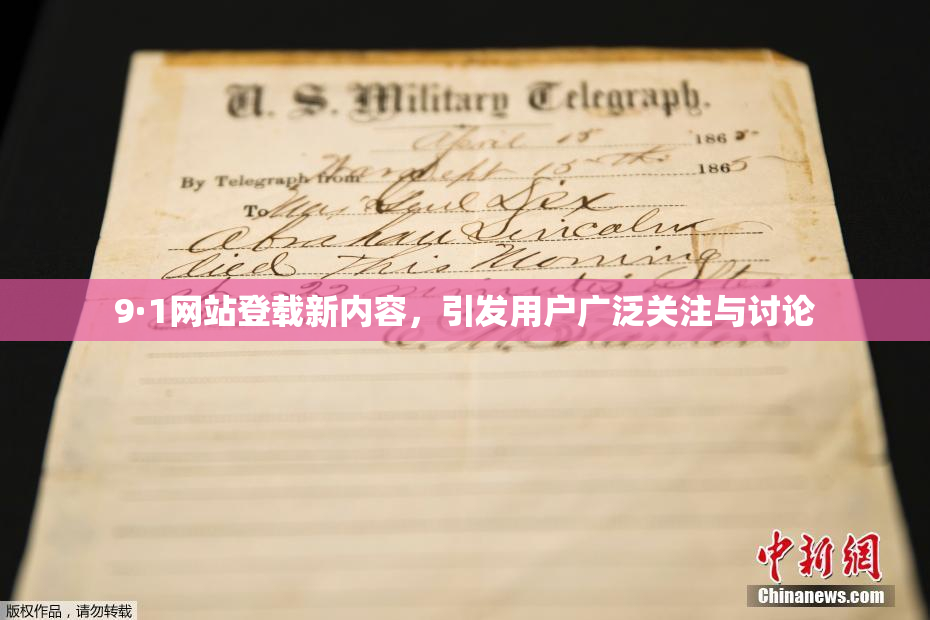 U. S. Military Telegraph.
April 15 1865
By Telegraph from War Dept 15th 1865
To Maj Genl Dix
Abraham Lincoln
died This Morning
22 minutes after
9·1网站登载新内容，引发用户广泛关注与讨论
E. M. Stanton
中新网
Chinanews.com
版权作品，请勿转载